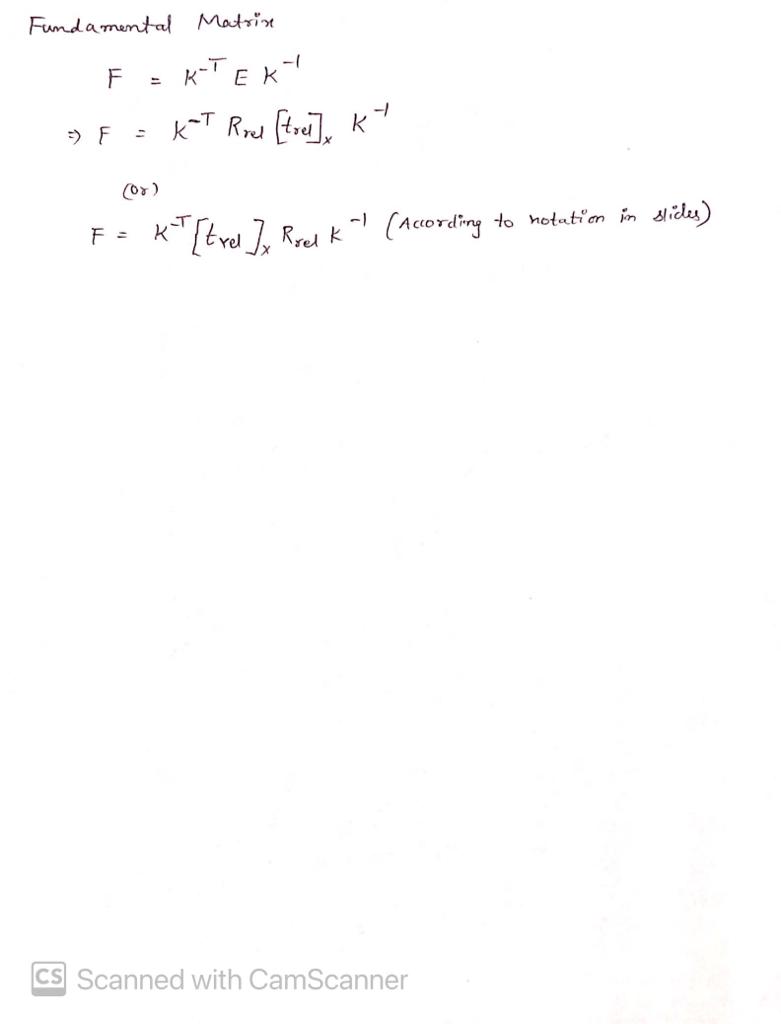 Fundamental Matrix
F = K^-T E K^-1
⇒ F = K^-T Rrel [trel]ₓ K^-1
(or)
F = K^-T [trel]ₓ Rrel K^-1 (According to notation in slides)
CS Scanned with CamScanner